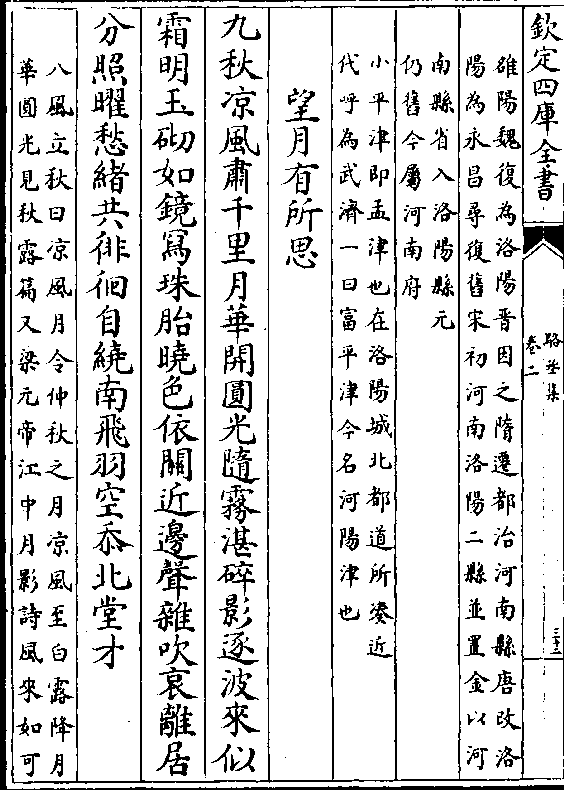 欽定四庫全書
駱丞集
卷二
三十二
雒陽魏復為洛陽晋因之隋遷都治河南縣唐改洛
陽為永昌尋復舊宋初河南洛陽二縣並置金以河
南縣省入洛陽縣元
仍舊今屬河南府
小平津即孟津也在洛陽城北都道所湊近
代呼為武濟一曰富平津今名河陽津也
望月有所思
九秋凉風肅千里月華開圓光隨霧湛碎影逐波來似
霜明玉砌如鏡寫珠胎曉色依關近邊聲雜吹哀離居
分照曜愁緒共徘徊自繞南飛羽空忝北堂才
八風立秋曰凉風月令仲秋之月凉風至白露降月
華圓光見秋露篇又梁元帝江中月影詩風來如可